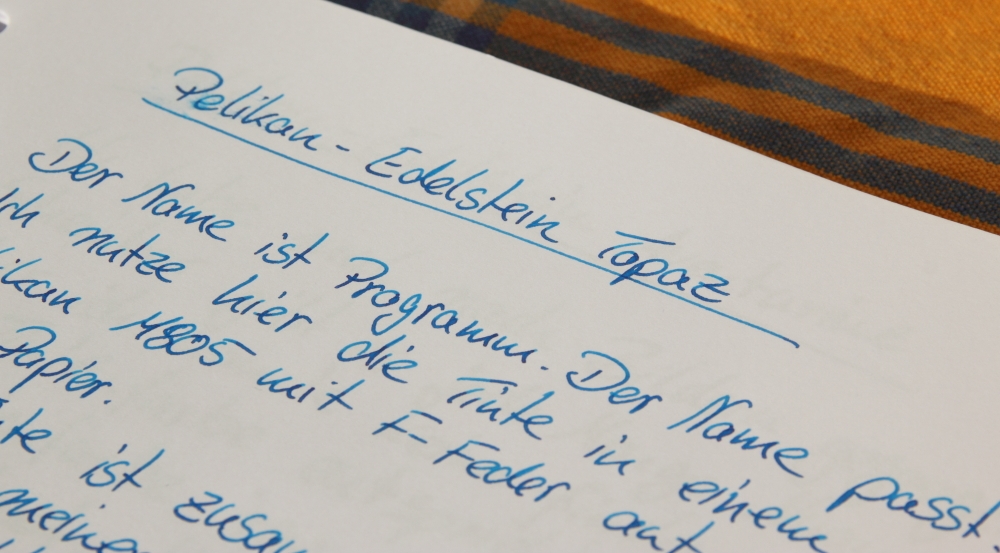 Pelikan - Edelstein Topaz
Der Name ist Programm. Der Name passt.
Ich nutze hier die Tinte in einem
M805 mit F-Feder auf
Papier.
ist
meine